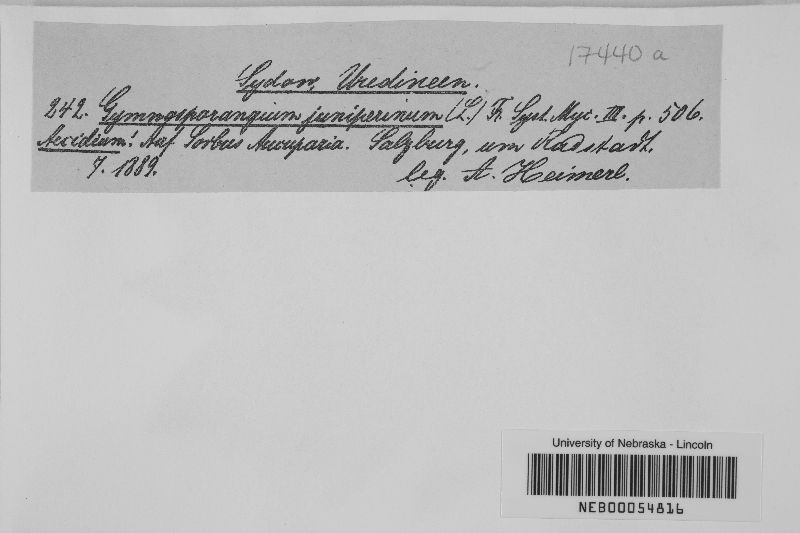 17440 a
Sydow, Uredineen.
242. Gymnosporangium juniperinum (L.) Fr. Syst. Myc. III. p. 506.
Aecidium! Auf Sorbus Aucuparia. Salzburg, um Radstadt.
7. 1889. leg. A. Heimerl.
University of Nebraska - Lincoln
NEB00054816